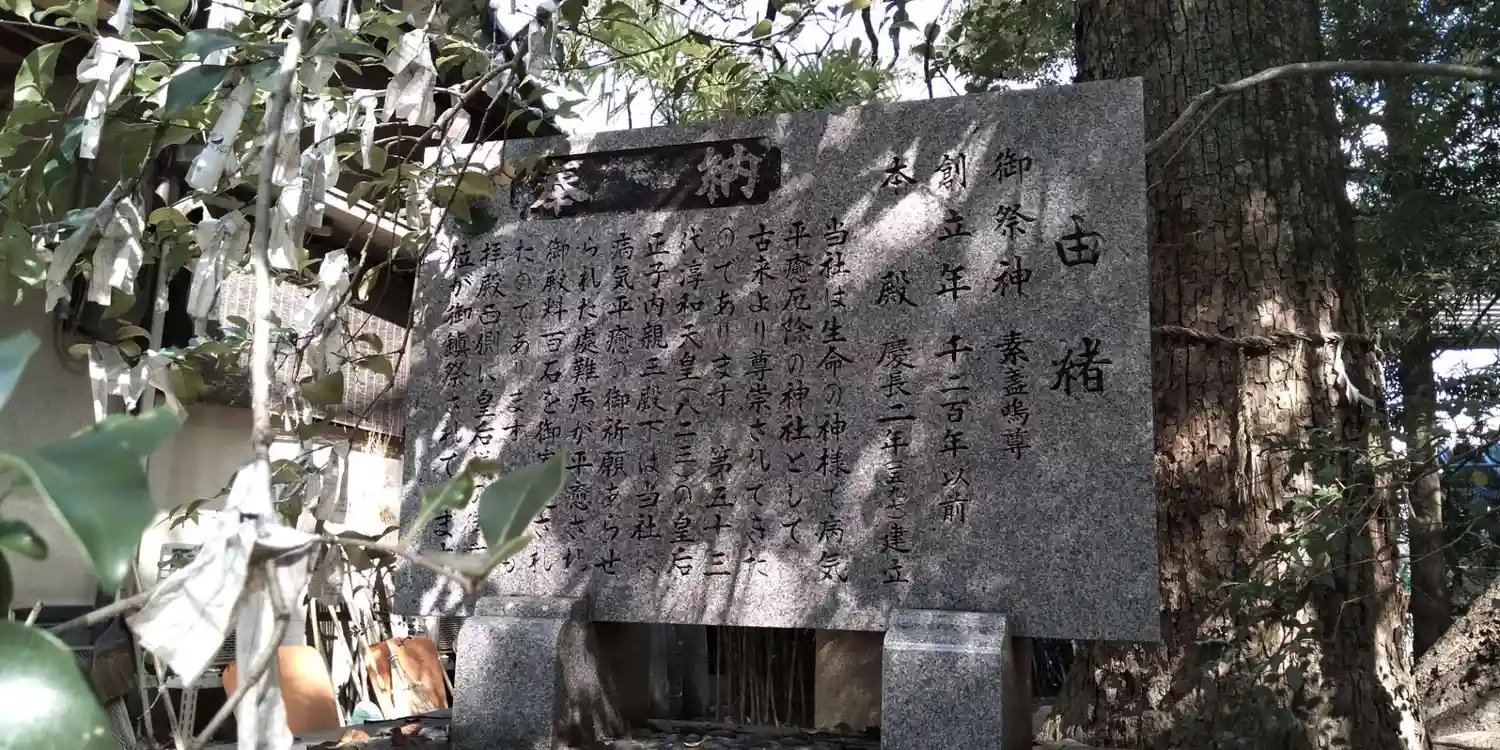 由緒
御祭神 素盞嗚尊
創立年 千二百年以前
本殿 慶長二年 建立
当社は生命の神様で病気
平癒厄除の神社として
古来より尊崇されてきた
のであります 第五十三
代淳和天皇(八二三)の皇后
正子内親王殿下は当社へ
病気平癒の御祈願あらせ
られた處難病が平癒され
御殿料百石を御
たのであります
拝殿西側に皇后
位が御鎮祭されて
奉納